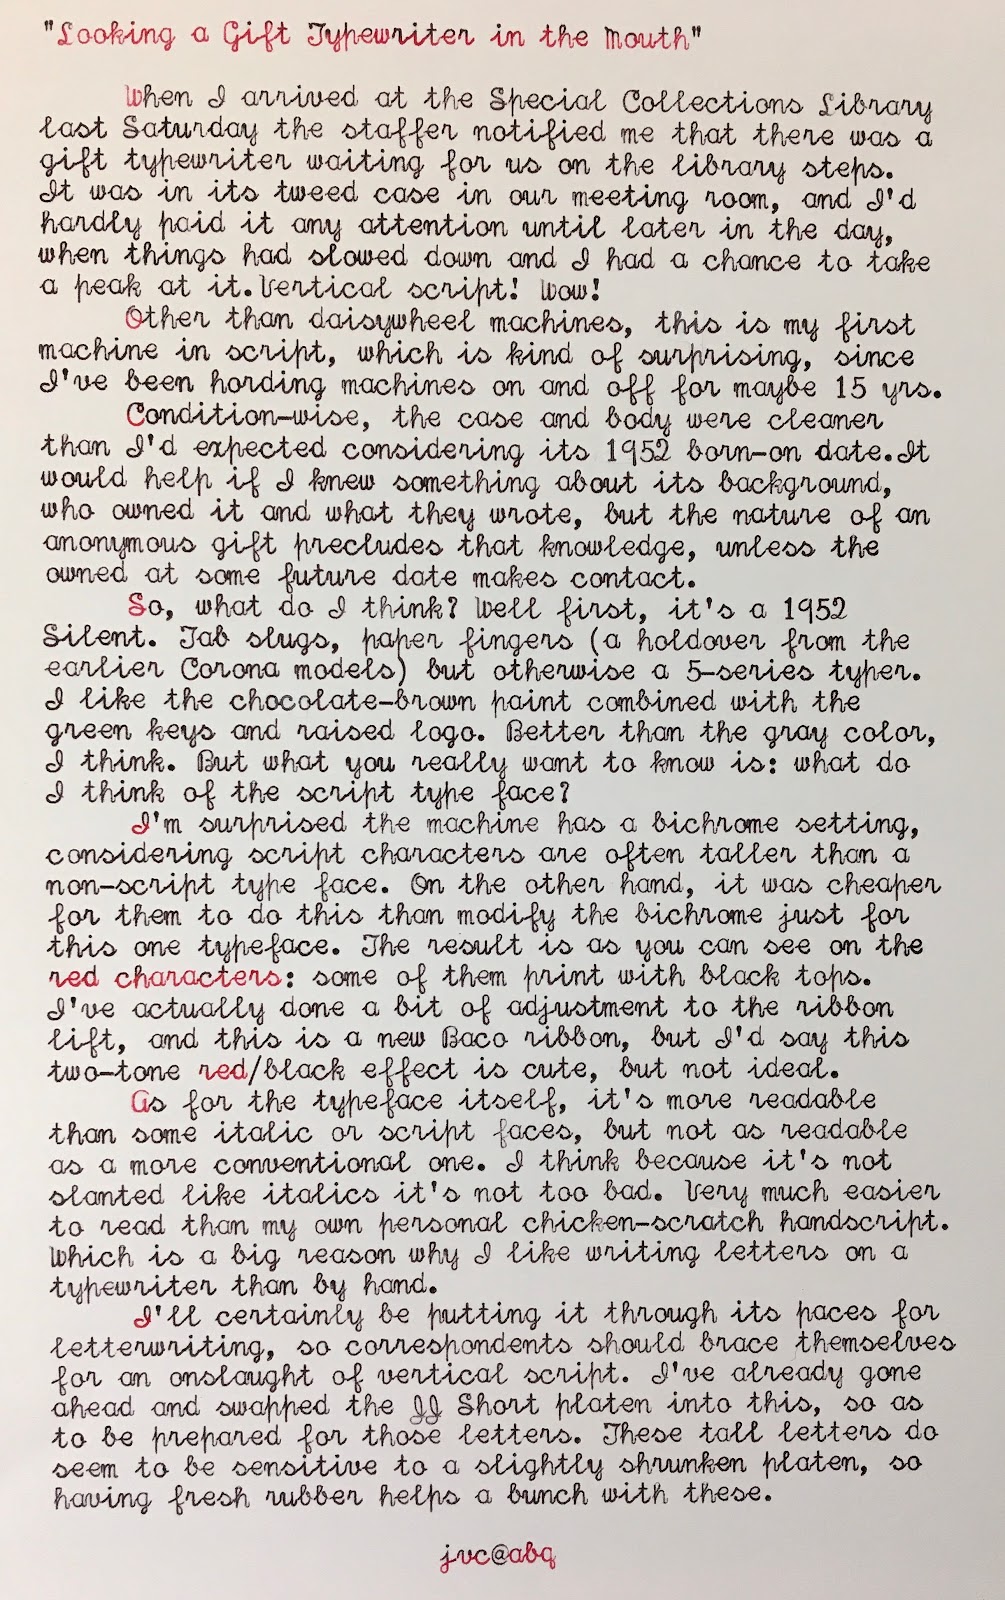 "Looking a Gift Typewriter in the Mouth"
When I arrived at the Special Collections Library
last Saturday the staffer notified me that there was a
gift typewriter waiting for us on the library steps.
It was in its tweed case in our meeting room, and I'd
hardly paid it any attention until later in the day,
when things had slowed down and I had a chance to take
a peak at it.Vertical script! Wow!
Other than daisywheel machines, this is my first
machine in script, which is kind of surprising, since
I've been hording machines on and off for maybe 15 yrs.
Condition-wise, the case and body were cleaner
than I'd expected considering its 1952 born-on date.It
would help if I knew something about its background,
who owned it and what they wrote, but the nature of an
anonymous gift precludes that knowledge, unless the
owned at some future date makes contact.
So, what do I think? Well first, it's a 1952
Silent. Tab slugs, paper fingers (a holdover from the
earlier Corona models) but otherwise a 5-series typer.
I like the chocolate-brown paint combined with the
green keys and raised logo. Better than the gray color,
I think. But what you really want to know is: what do
I think of the script type face?
I'm surprised the machine has a bichrome setting,
considering script characters are often taller than a
non-script type face. On the other hand, it was cheaper
for them to do this than modify the bichrome just for
this one typeface. The result is as you can see on the
red characters: some of them print with black tops.
I've actually done a bit of adjustment to the ribbon
lift, and this is a new Baco ribbon, but I'd say this
two-tone red/black effect is cute, but not ideal.
As for the typeface itself, it's more readable
than some italic or script faces, but not as readable
as a more conventional one. I think because it's not
slanted like italics it's not too bad. Very much easier
to read than my own personal chicken-scratch handscript.
Which is a big reason why I like writing letters on a
typewriter than by hand.
I'll certainly be putting it through its paces for
letterwriting, so correspondents should brace themselves
for an onslaught of vertical script. I've already gone
ahead and swapped the JJ Short platen into this, so as
to be prepared for those letters. These tall letters do
seem to be sensitive to a slightly shrunken platen, so
having fresh rubber helps a bunch with these.
jvc@abq